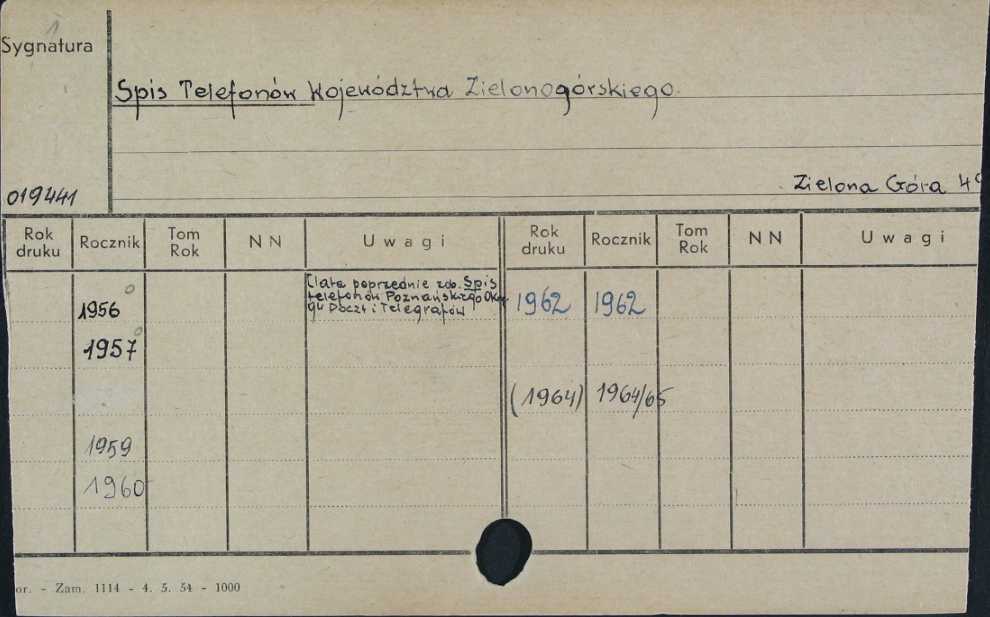 Sygnatura
Spis Telefonów Województwa Zielonogórskiego.
Zielona Góra
019441
Rok druku Rocznik Tom Rok NN Uwagi Rok druku Rocznik Tom Rok NN Uwagi
1956 Lata poprzednie zob. Spis
telefonów Poznańskiego Okrę-
gu Poczt i Telegrafów
1962 1962
1957
(1964) 1964/65
1959
1960
or. - Zam. 1114 - 4. 5. 54 - 1000